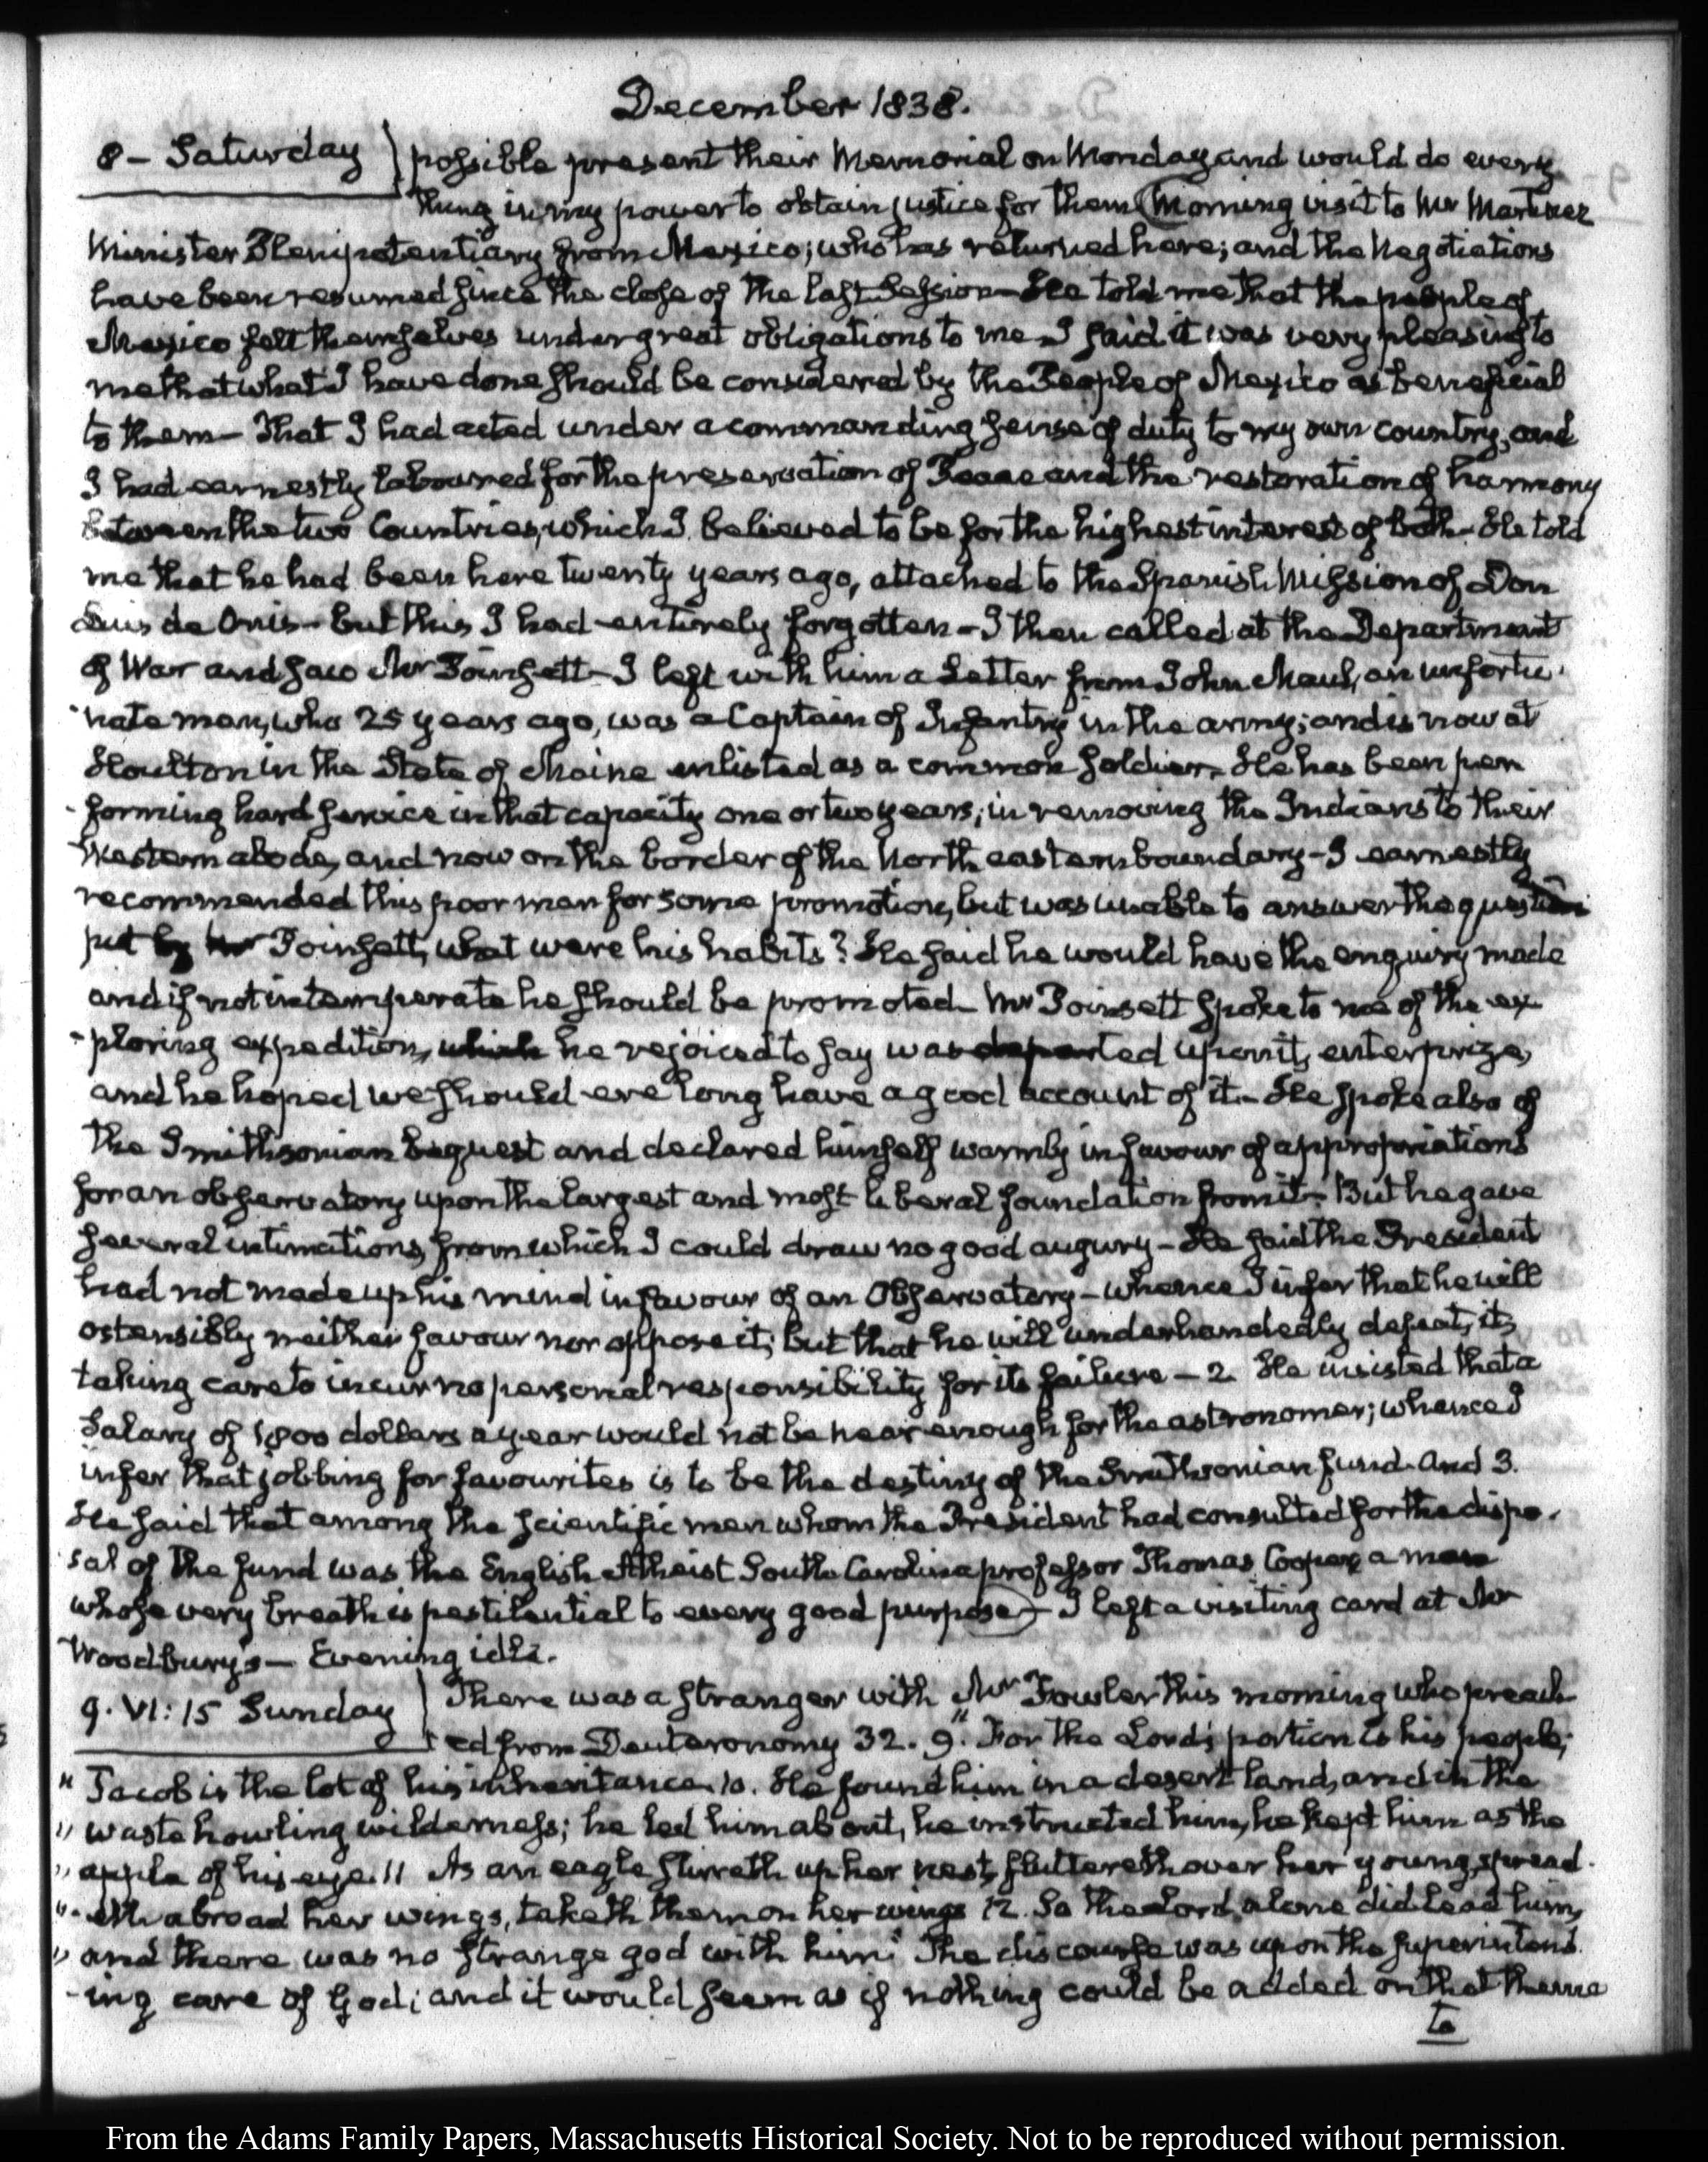 December 1838.
8 - Saturday
possible present their Memorial on Monday and would do every
thing in my power to obtain justice for them (Morning visit to Mr Martinez
Minister Plenipotentiary from Mexico; who has returned here; and the Negotiations
have been resumed since the close of the last Session - He told me that the people of
Mexico felt themselves under great obligations to me - I said it was very pleasing to
me that what I have done should be considered by the People of Mexico as beneficial
to them - That I had acted under a commanding sense of duty to my own country, and
I had earnestly laboured for the preservation of Peace and the restoration of harmony
between the two Countries, which I believed to be for the highest interest of both - He told
me that he had been here twenty years ago, attached to the Spanish Mission of Don
Luis de Onis - but this I had entirely forgotten - I then called at the Department
of War and saw Mr Poinsett - I left with him a Letter from John Maul, an unfortu-
-nate man, who 25 years ago, was a Captain of Infantry in the army; and is now at
Houlton in the State of Maine enlisted as a common soldier. He has been per
-forming hard service in that capacity one or two years; in removing the Indians to their
Western abode, and now on the border of the North eastern boundary - I earnestly
recommended this poor man for some promotion, but was unable to answer the question
put by Mr Poinsett, what were his habits? He said he would have the enquiry made
and if not intemperate he should be promoted - Mr Poinsett spoke to me of the ex
-ploring expedition, which he rejoiced to say was departed upon its enterprize,
and he hoped we should ere long have a good account of it - He spoke also of
the Smithsonian bequest and declared himself warmly in favour of appropriations
for an observatory upon the largest and most liberal foundation from it - But he gave
several intimations from which I could draw no good augury - He said the President
had not made up his mind in favour of an Observatory - whence I infer that he will
ostensibly neither favour nor oppose it; but that he will underhandedly defeat it,
taking care to incur no personal responsibility for its failure - 2. He insisted that a
Salary of 1800 dollars a year would not be near enough for the astronomer; whence I
infer that jobbing for favourites is to be the destiny of the Smithsonian fund. And 3.
He said that among the scientific men whom the President had consulted for the dispo-
sal of the fund was the English Atheist South Carolina professor Thomas Cooper, a man
whose very breath is pestilential to every good purpose) - I left a visiting card at Mr
Woodbury's - Evening idle.
9. VI:15 Sunday
There was a stranger with Mr Fowler this morning who preach
ed from Deuteronomy 32. 9. "For the Lord's portion is his people;
" Jacob is the lot of his inheritance. 10. He found him in a desert land, and in the
" waste howling wilderness; he led him about, he instructed him, he kept him as the
" apple of his eye. 11 As an eagle stirreth up her nest, fluttereth over her young, spread-
"-eth abroad her wings, taketh them on her wings 12. So the Lord alone did lead him,
" and there was no strange god with him" The discourse was upon the superintend
-ing care of God; and it would seem as if nothing could be added on that theme
to
From the Adams Family Papers, Massachusetts Historical Society. Not to be reproduced without permission.